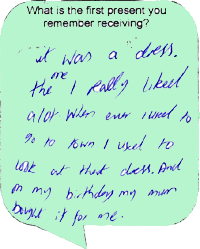 What is the first present you
remember receiving?
it was a dress.
the one I Really liked
alot when ever i used to
go to town I used to
look at that dress. And
on my birthday my mum
bought it for me.